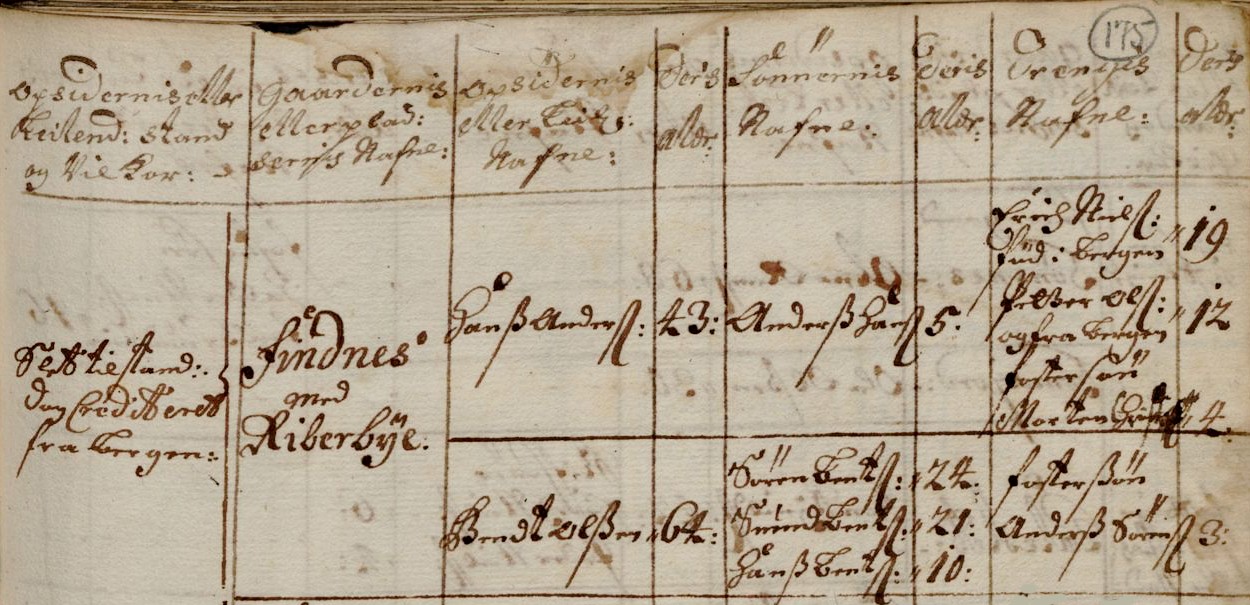 175
Opsidernis eller
Leilend: stand
og Vilkor:
Gaardernis
eller plad:
sernis Nafne:
Opsidernis
eller Leil:
Nafne:
Deris
alder.
Sønnernis
Nafne:
Deris
alder.
Drengis
Nafne:
Deris
alder.
Slet tilstand:
dog Creditteret
fra bergen:
Findnes
med
Riberbÿe:
Hanß Anderß: 43:
Anderß Hanß 5:
Erich Nielß:
fød i bergen 19
Peder Olß:
og fra bergen 12
foster søn
Morten 4.
Bendt Olßen 64:
Søren bentß: 24:
Smind bentß: 21:
Hanß bentß: 10:
fosterßøn
Anderß Sørenß 3: